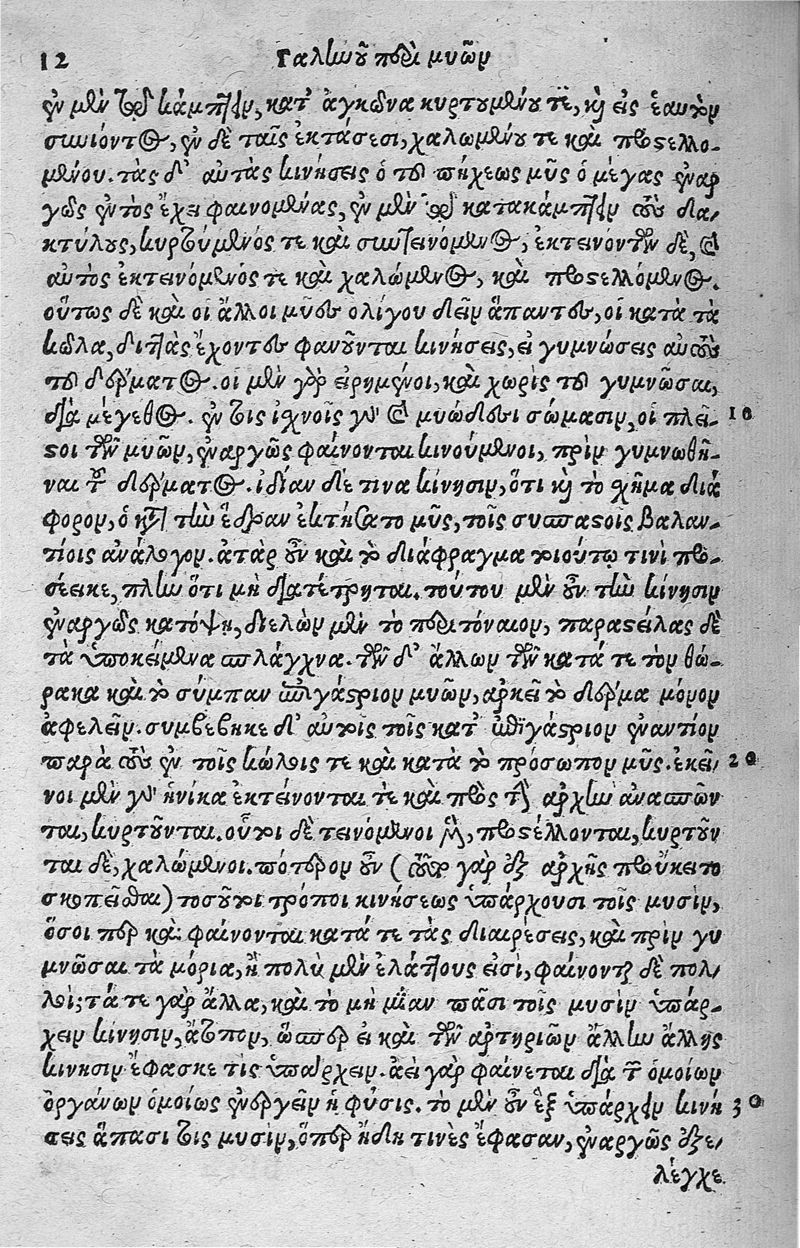 12 Γαληνοῦ περὶ μυῶν
ἐν μὲν τῷ κάμπτειν, κατ' ἀγκῶνα κυρτουμένου τε, καὶ εἰς ἑαυτὸν
συνιόντος, ἐν δὲ ταῖς ἐκτάσεσι, χαλωμένου τε καὶ προστελλο-
μένου. τὰς δ' αὐτὰς κινήσεις ὁ τοῦ πήχεως μῦς ὁ μέγας ἐναρ
γῶς ἐντὸς ἔχει φαινομένας, ἐν μὲν τῷ κατακάμπτειν τοὺς δα-
κτύλους, κυρτούμενός τε καὶ συντεινόμενος, ἐκτεινόντων δὲ, καὶ
αὐτὸς ἐκτεινόμενός τε καὶ χαλώμενος, καὶ προστελλόμενος.
οὕτως δὲ καὶ οἱ ἄλλοι μῦες ὀλίγου δεῖν ἅπαντες, οἱ κατὰ τὰ
κῶλα, διττὰς ἔχοντες φανοῦνται κινήσεις, εἰ γυμνώσεις αὐτοὺς
τοῦ δέρματος. οἱ μὲν γὰρ εἰρημένοι, καὶ χωρὶς τοῦ γυμνῶσαι,
διὰ μέγεθος. ἐν τοῖς ἰχνοῖς γε καὶ μυώδεσι σώμασιν, οἱ πλεῖ- 10
στοι τῶν μυῶν, ἐναργῶς φαίνονται κινούμενοι, πρὶν γυμνωθῆ-
ναι τοῦ δέρματος. ἰδίαν δέ τινα κίνησιν, ὅτι καὶ τὸ σχῆμα διά
φορον, ὁ κατὰ τὴν ἕδραν ἐκτήσατο μῦς, τοῖς συσπαστοῖς βαλαν-
τίοις ἀνάλογον. ἀτὰρ οὖν καὶ τὸ διάφραγμα τοιούτῳ τινὶ προ-
σέοικε, πλὴν ὅτι μὴ διατέτρηται. τούτου μὲν οὖν τὴν κίνησιν
ἐναργῶς κατόψη, διελὼν μὲν τὸ περιτόναιον, παραστείλας δὲ
τὰ ὑποκείμενα σπλάγχνα. τῶν δ' ἄλλων τῶν κατά τε τὸν θώ-
ρακα καὶ τὸ σύμπαν ἐπιγάστριον μυῶν, ἀρκεῖ τὸ δέρμα μόνον
ἀφελεῖν. συμβέβηκε δ' αὐτοῖς τοῖς κατ' ἐπιγάστριον ἐναντίον
παρὰ τοὺς ἐν τοῖς κώλοις τε καὶ κατὰ τὸ πρόσωπον μῦς. ἐκεῖ- 20
νοι μὲν γε ἡνίκα ἐκτείνονταί τε καὶ πρὸς τὴν ἀρχὴν ἀνασπῶν
ται, κυρτοῦνται. οὗτοι δὲ τεινόμενοι μὲν, προστέλλονται, κυρτοῦν
ται δὲ, χαλώμενοι. πότερον οὖν (τοῦτο γὰρ ἐξ ἀρχῆς προὔκειτο
σκοπεῖσθαι) τοσοῦτοι τρόποι κινήσεως ὑπάρχουσι τοῖς μυσὶν,
ὅσοι περ καὶ φαίνονται κατά τε τὰς διαιρέσεις, καὶ πρὶν γυ
μνῶσαι τὰ μόρια, ἢ πολὺ μὲν ἐλάττους εἰσὶ, φαίνονται δὲ πολ-
λοί; τά τε γὰρ ἄλλα, καὶ τὸ μὴ μίαν πᾶσι τοῖς μυσὶν ὑπάρ-
χειν κίνησιν, ἄτοπον, ὥσπερ εἰ καὶ τῶν ἀρτηριῶν ἄλλην ἄλλης
κίνησιν ἔφασκέ τις ὑπάρχειν. ἀεὶ γὰρ φαίνεται διὰ τῶν ὁμοίων
ὀργάνων ὁμοίως ἐνεργεῖν ἡ φύσις. τὸ μὲν οὖν ἓξ ὑπάρχειν κινή 30
σεις ἅπασι τοῖς μυσὶν, ὅπερ ἤδη τινὲς ἔφασαν, ἐναργῶς ἐξε-
λέγχε